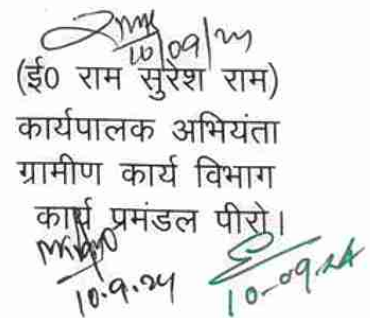 10/09/24
(ई0 राम सुरेश राम)
कार्यपालक अभियंता
ग्रामीण कार्य विभाग
कार्य प्रमंडल पीरो।
10.9.24 10-09-24